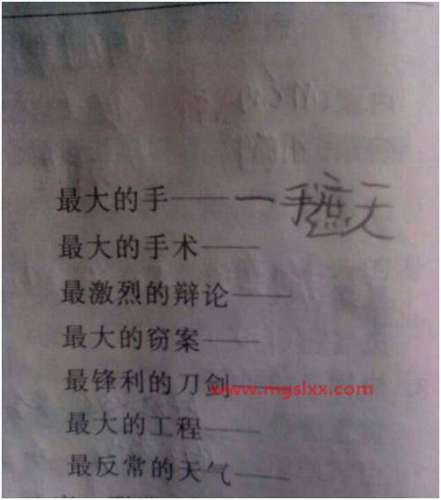 最大的手——一手遮天
最大的手术——
最激烈的辩论——
最大的窃案——
最锋利的刀剑——
www.mgslxx.com
最大的工程——
最反常的天气——